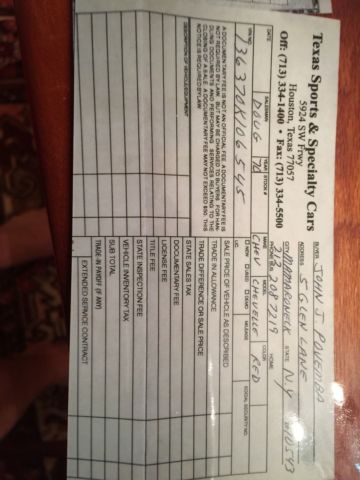 Texas Sports & Specialty Cars
5924 SW Frwy
Houston, Texas 77057
Off: (713) 334-1400 • Fax: (713) 334-5500
BUYER
ADDRESS 5 GLEN LANE
CITY MAMARONECK STATE N.Y. 10543
HOME
DATE SALESMAN DOUG YEAR 70 STOCK #
MAKE CHEV MODEL CHEVELLE COLOR RED
136370K106545
NEW USED DEMO MILEAGE
LIC. SOCIAL SECURITY NO.
A DOCUMENTARY FEE IS NOT AN OFFICIAL FEE. A DOCUMENTARY FEE IS
NOT REQUIRED BY LAW, BUT MAY BE CHARGED TO BUYERS FOR HAN-
DLING DOCUMENTS AND PERFORMING SERVICES RELATING TO THE
CLOSING OF A SALE. A DOCUMENTARY FEE MAY NOT EXCEED $50. THIS
NOTICE IS REQUIRED BY LAW.
DESCRIPTION OF VEHICLE/EQUIPMENT
SALE PRICE OF VEHICLE AS DESCRIBED
TRADE IN ALLOWANCE
TRADE DIFFERENCE OR SALE PRICE
STATE SALES TAX
DOCUMENTARY FEE
LICENSE FEE
TITLE FEE
STATE INSPECTION FEE
VEHICLE INVENTORY TAX
SUB TOTAL
TRADE-IN PAYOFF (IF ANY)
EXTENDED SERVICE CONTRACT